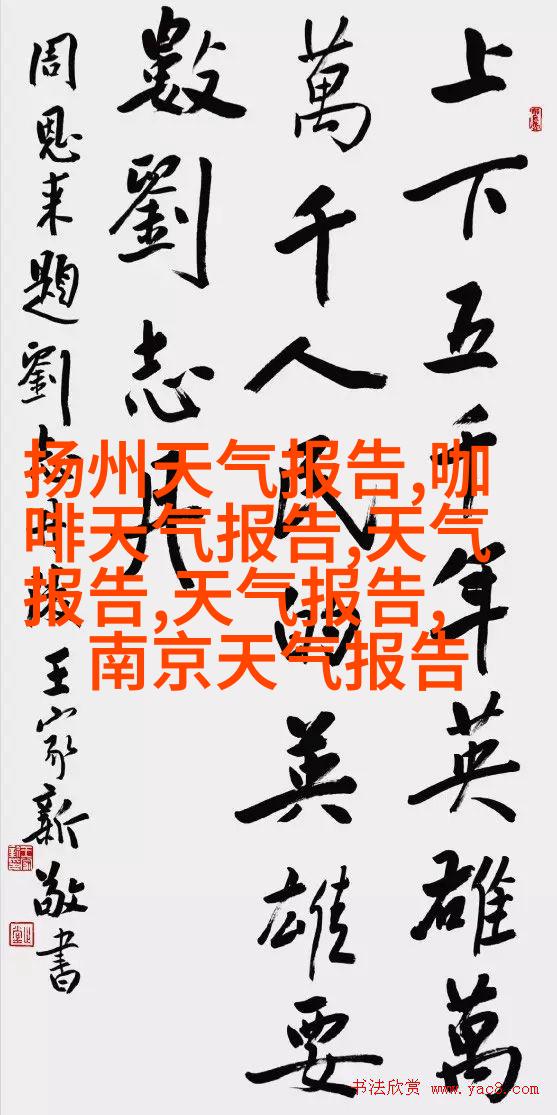 上下五千年英雄萬
萬千人民的英雄要
數劉志丹
周恩来題劉志丹 王家新敬書
扬州天气报告,咖
啡天气报告,天气
报告,天气报告,
南京天气报告
书法欣赏 www.yac8.com